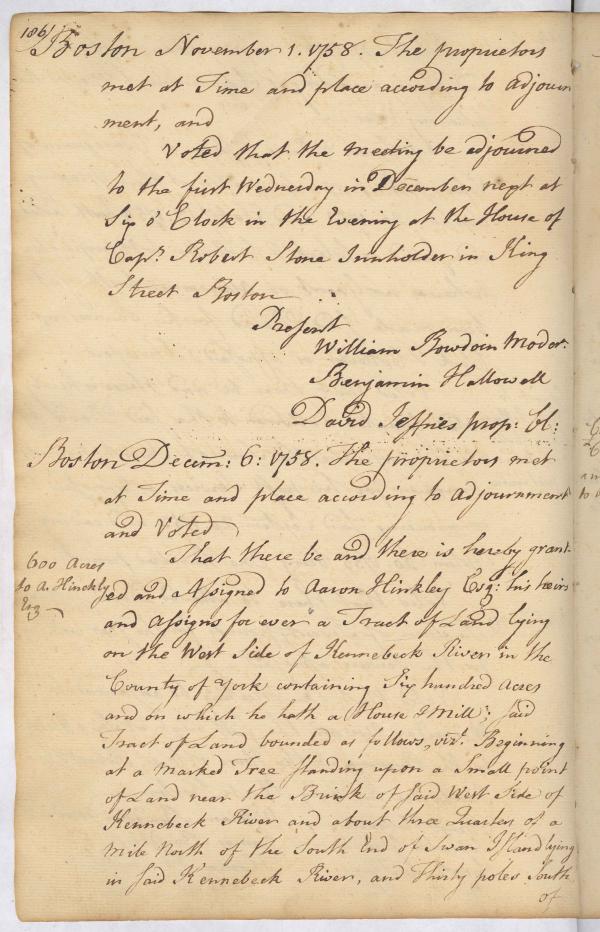 186/
Boston November 1. 1758. The proprietors
met at Time and place according to adjourn
ment, and
Voted that the meeting be adjourned
to the first Wednesday in December next at
Six o' Clock in the Evening at the House of
Capt. Robert Stone Innholder in King
Street Boston
Present
William Bowdoin Moder:
Benjamin Hallowell
David Jeffries prop: Cl:
Boston Decem: 6: 1758. The proprietors met
at Time and place according to adjournment
and Voted
That there be and there is hereby grant-
600 Acres
to A. Hinckly
Esq
ed and Assigned to Aaron Hinkley Esq: his heirs
and Assigns for ever a Tract of Land lying
on the West Side of Kennebeck River in the
County of York containing Six hundred Acres
and on which he hath a House & Mill; said
Tract of Land bounded as follows, vizt. Beginning
at a marked Tree standing upon a Small point
of Land near the Brink of said West Side of
Kennebeck River and about three Quarters of a
mile North of the South End of Swan Island lying
in said Kennebeck River, and Thirty poles South
of